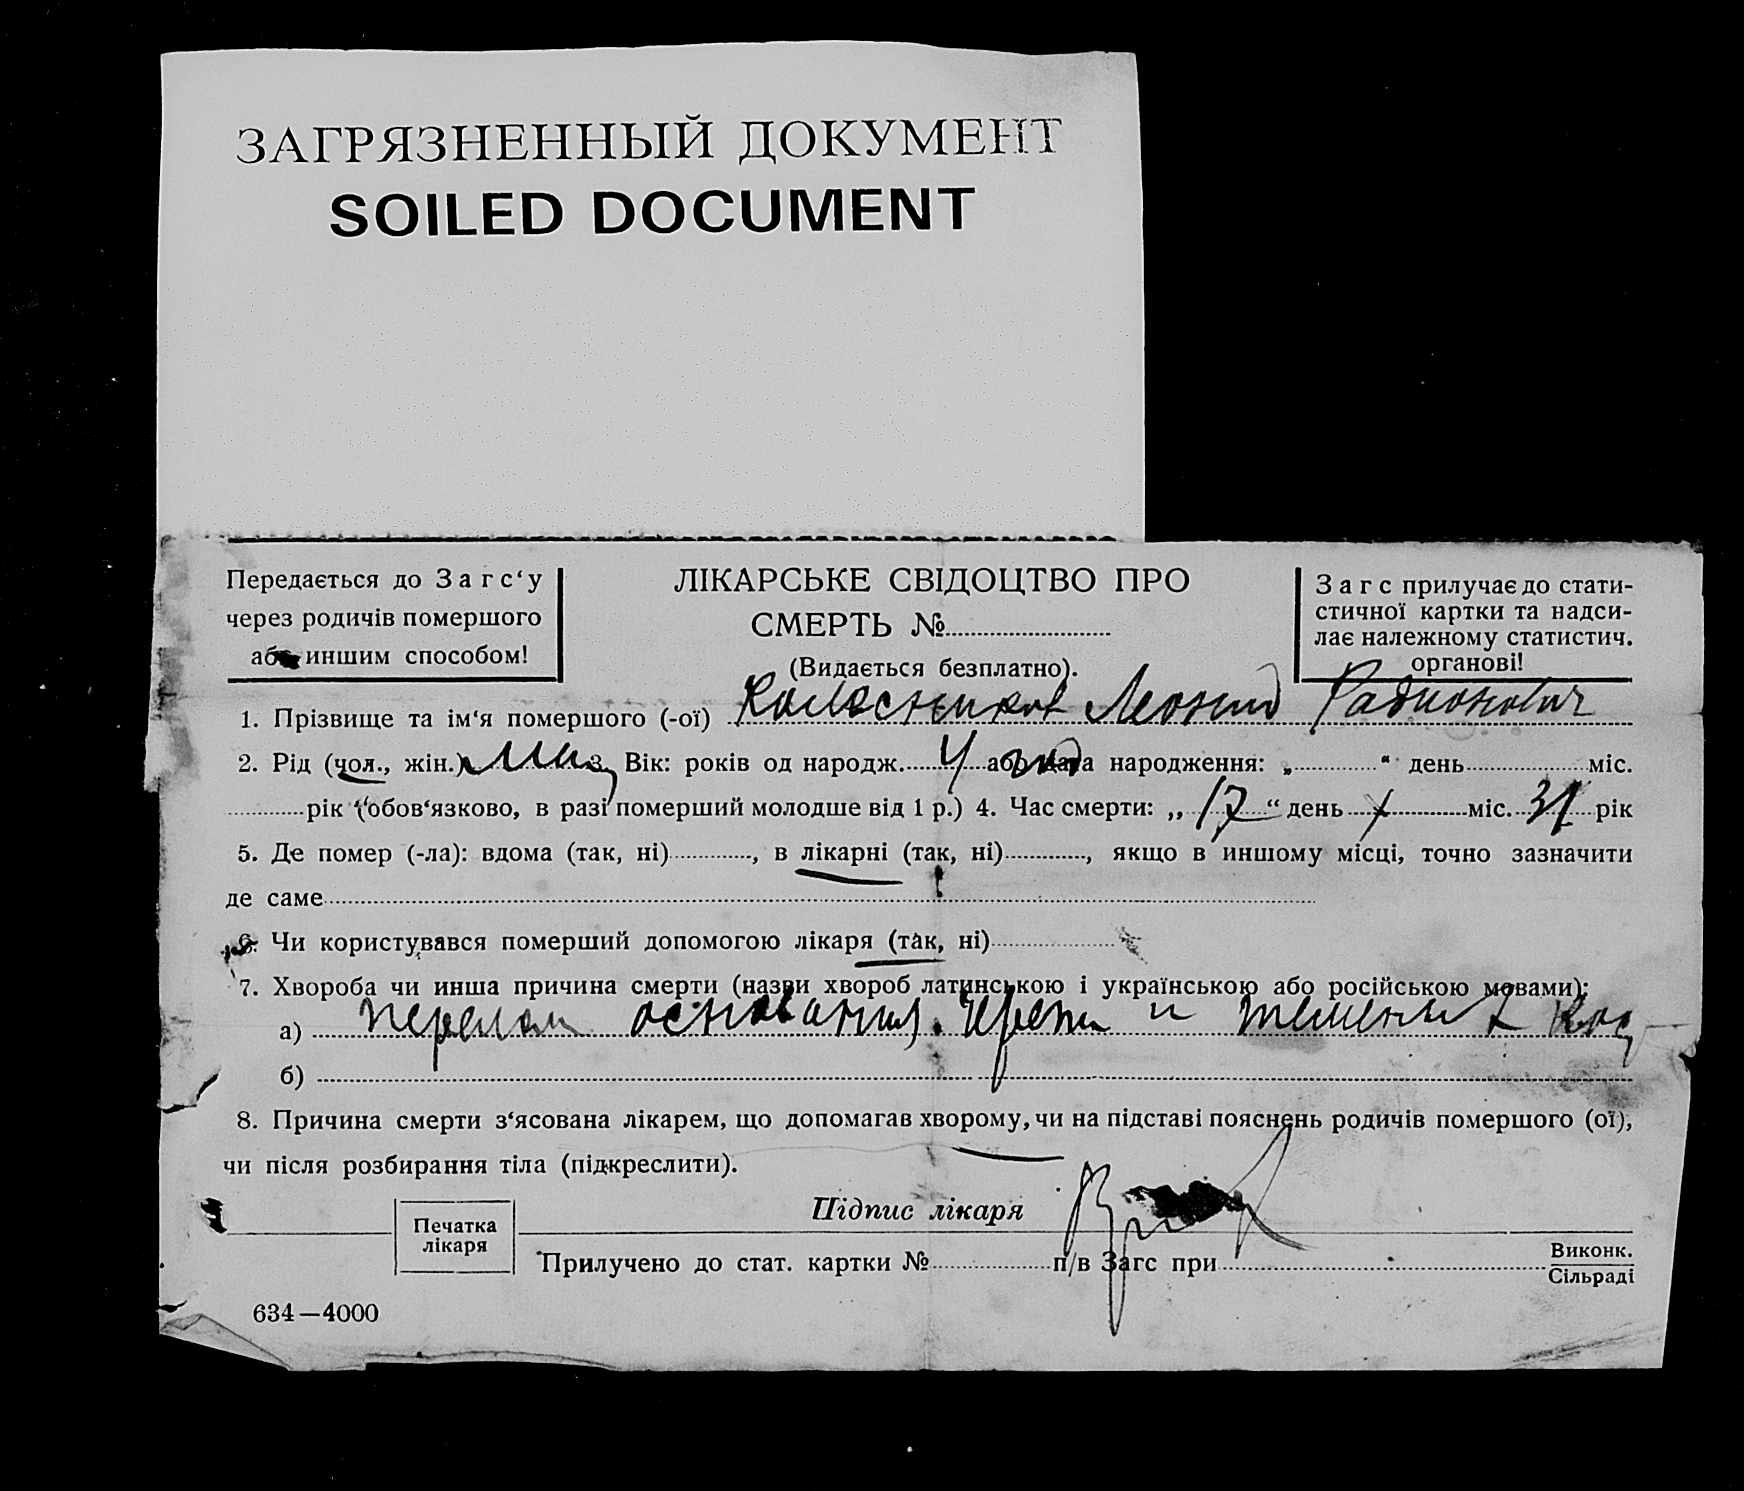 ЗАГРЯЗНЕННЫЙ ДОКУМЕНТ
SOILED DOCUMENT
Передається до Загс‘у
через родичів помершого
або иншим способом!
ЛІКАРСЬКЕ СВІДОЦТВО ПРО
СМЕРТЬ №
(Видається безплатно).
Загс прилучає до стати-
стичної картки та надси-
лає належному статистич.
органові!
1. Прізвище та ім‘я помершого (-ої) Колесников Леонид Радионович
2. Рід (чол., жін.) 3. Вік: років од народж. 4 год або дата народження: „ “ день міс.
рік (обов‘язково, в разі померший молодше від 1 р.) 4. Час смерти: „ 17 “ день міс. 31 рік
5. Де помер (-ла): вдома (так, ні), в лікарні (так, ні), якщо в иншому місці, точно зазначити
де саме
6. Чи користувався померший допомогою лікаря (так, ні)
7. Хвороба чи инша причина смерти (назви хвороб латинською і українською або російською мовами):
а) перелом основания черепа и темени
б)
8. Причина смерти з‘ясована лікарем, що допомагав хворому, чи на підставі пояснень родичів помершого (ої),
чи після розбирання тіла (підкреслити).
Підпис лікаря
Печатка
лікаря
Прилучено до стат. картки № п/в Загс при Виконк.
Сільраді
634—4000